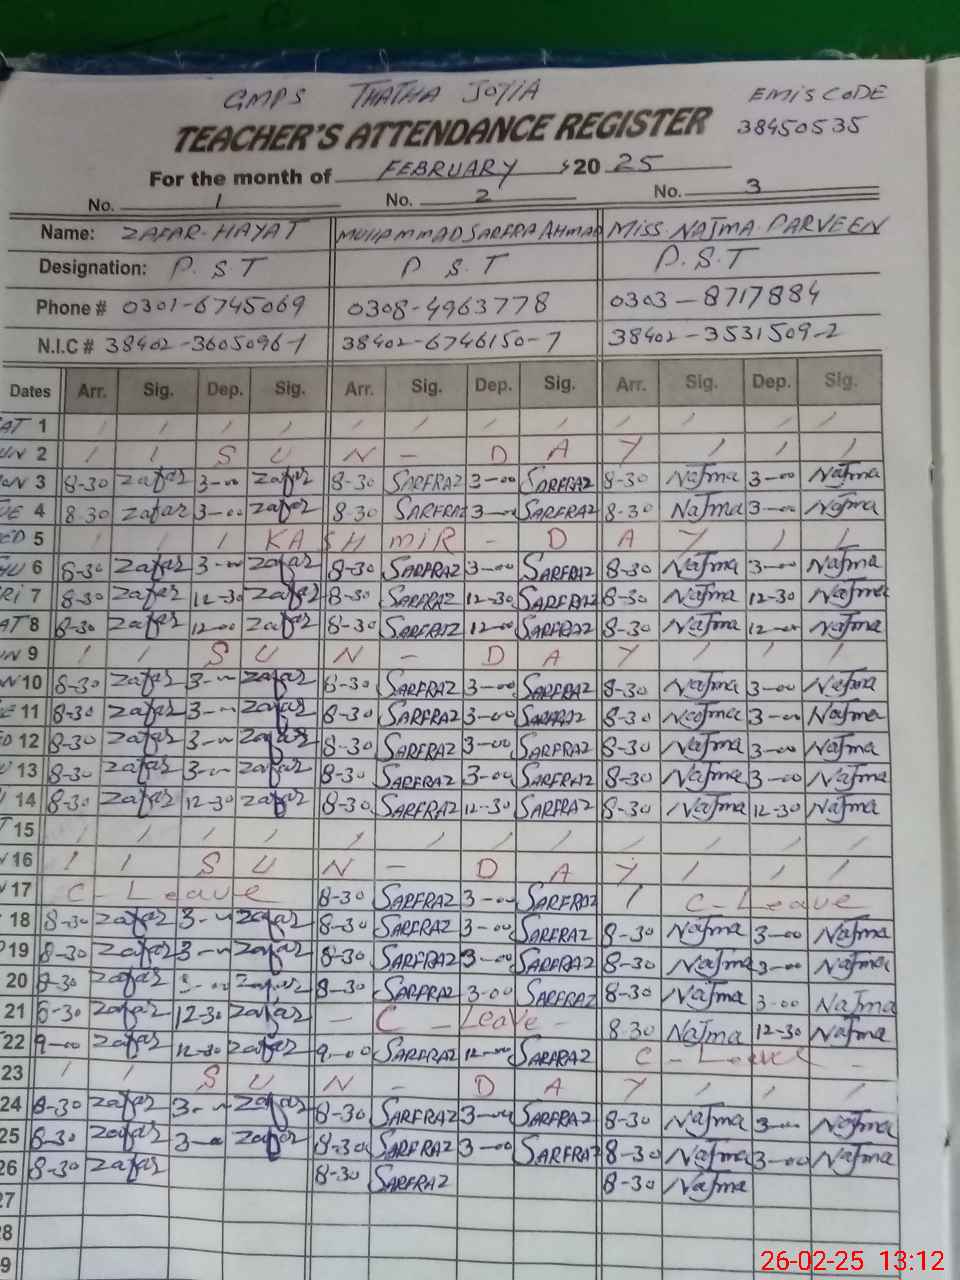 GMPS THATHA JOYIA EMIS CODE
TEACHER'S ATTENDANCE REGISTER 38450535
For the month of FEBRUARY 2025
No. 1 No. 2 No. 3
Name: ZAFAR-HAYAT MUHAMMAD SARFRA AHMAD MISS. NAJMA PARVEEN
Designation: P. S. T P S.T P.S.T
Phone # 0301-6745069 0308-4963778 0303-8717884
N.I.C # 38402-3605096-1 38402-6746150-7 38402-3531509-2
Dates Arr. Sig. Dep. Sig. Arr. Sig. Dep. Sig. Arr. Sig. Dep. Sig.
AT 1 / / / / / / / / / / / /
UN 2 / / S U N - D A Y / / /
ON 3 8-30 Zafar 3-00 Zafar 8-30 SARFRAZ 3-00 SARFRAZ 8-30 Najma 3-00 Najma
UE 4 8-30 Zafar 3-00 Zafar 8-30 SARFRAZ 3-00 SARFRAZ 8-30 Najma 3-00 Najma
ED 5 / / / KASHMIR - D A Y / /
HU 6 8-30 Zafar 3-00 Zafar 8-30 SARFRAZ 3-00 SARFRAZ 8-30 Najma 3-00 Najma
RI 7 8-30 Zafar 12-30 Zafar 8-30 SARFRAZ 12-30 SARFRAZ 8-30 Najma 12-30 Najma
AT 8 8-30 Zafar 12-00 Zafar 8-30 SARFRAZ 12-00 SARFRAZ 8-30 Najma 12-00 Najma
UN 9 / / S U N - D A Y / / /
N 10 8-30 Zafar 3-00 Zafar 8-30 SARFRAZ 3-00 SARFRAZ 8-30 Najma 3-00 Najma
E 11 8-30 Zafar 3-00 Zafar 8-30 SARFRAZ 3-00 SARFRAZ 8-30 Najma 3-00 Najma
D 12 8-30 Zafar 3-00 Zafar 8-30 SARFRAZ 3-00 SARFRAZ 8-30 Najma 3-00 Najma
U 13 8-30 Zafar 3-00 Zafar 8-30 SARFRAZ 3-00 SARFRAZ 8-30 Najma 3-00 Najma
14 8-30 Zafar 12-30 Zafar 8-30 SARFRAZ 12-30 SARFRAZ 8-30 Najma 12-30 Najma
T 15 / / / / / / / / / / / /
16 / / S U N - D A Y / / /
17 C - Leave 8-30 SARFRAZ 3-00 SARFRAZ / C - Leave
18 8-30 Zafar 3-00 Zafar 8-30 SARFRAZ 3-00 SARFRAZ 8-30 Najma 3-00 Najma
19 8-30 Zafar 3-00 Zafar 8-30 SARFRAZ 3-00 SARFRAZ 8-30 Najma 3-00 Najma
20 8-30 Zafar 3-00 Zafar 8-30 SARFRAZ 3-00 SARFRAZ 8-30 Najma 3-00 Najma
21 8-30 Zafar 12-30 Zafar - C - Leave - 8-30 Najma 12-30 Najma
22 9-00 Zafar 12-30 Zafar 9-00 SARFRAZ 12-00 SARFRAZ C - Leave -
23 / / S U N - D A Y / / /
24 8-30 Zafar 3-00 Zafar 8-30 SARFRAZ 3-00 SARFRAZ 8-30 Najma 3-00 Najma
25 8-30 Zafar 3-00 Zafar 8-30 SARFRAZ 3-00 SARFRAZ 8-30 Najma 3-00 Najma
26 8-30 Zafar 8-30 SARFRAZ 8-30 Najma
27
28
9
26-02-25 13:12